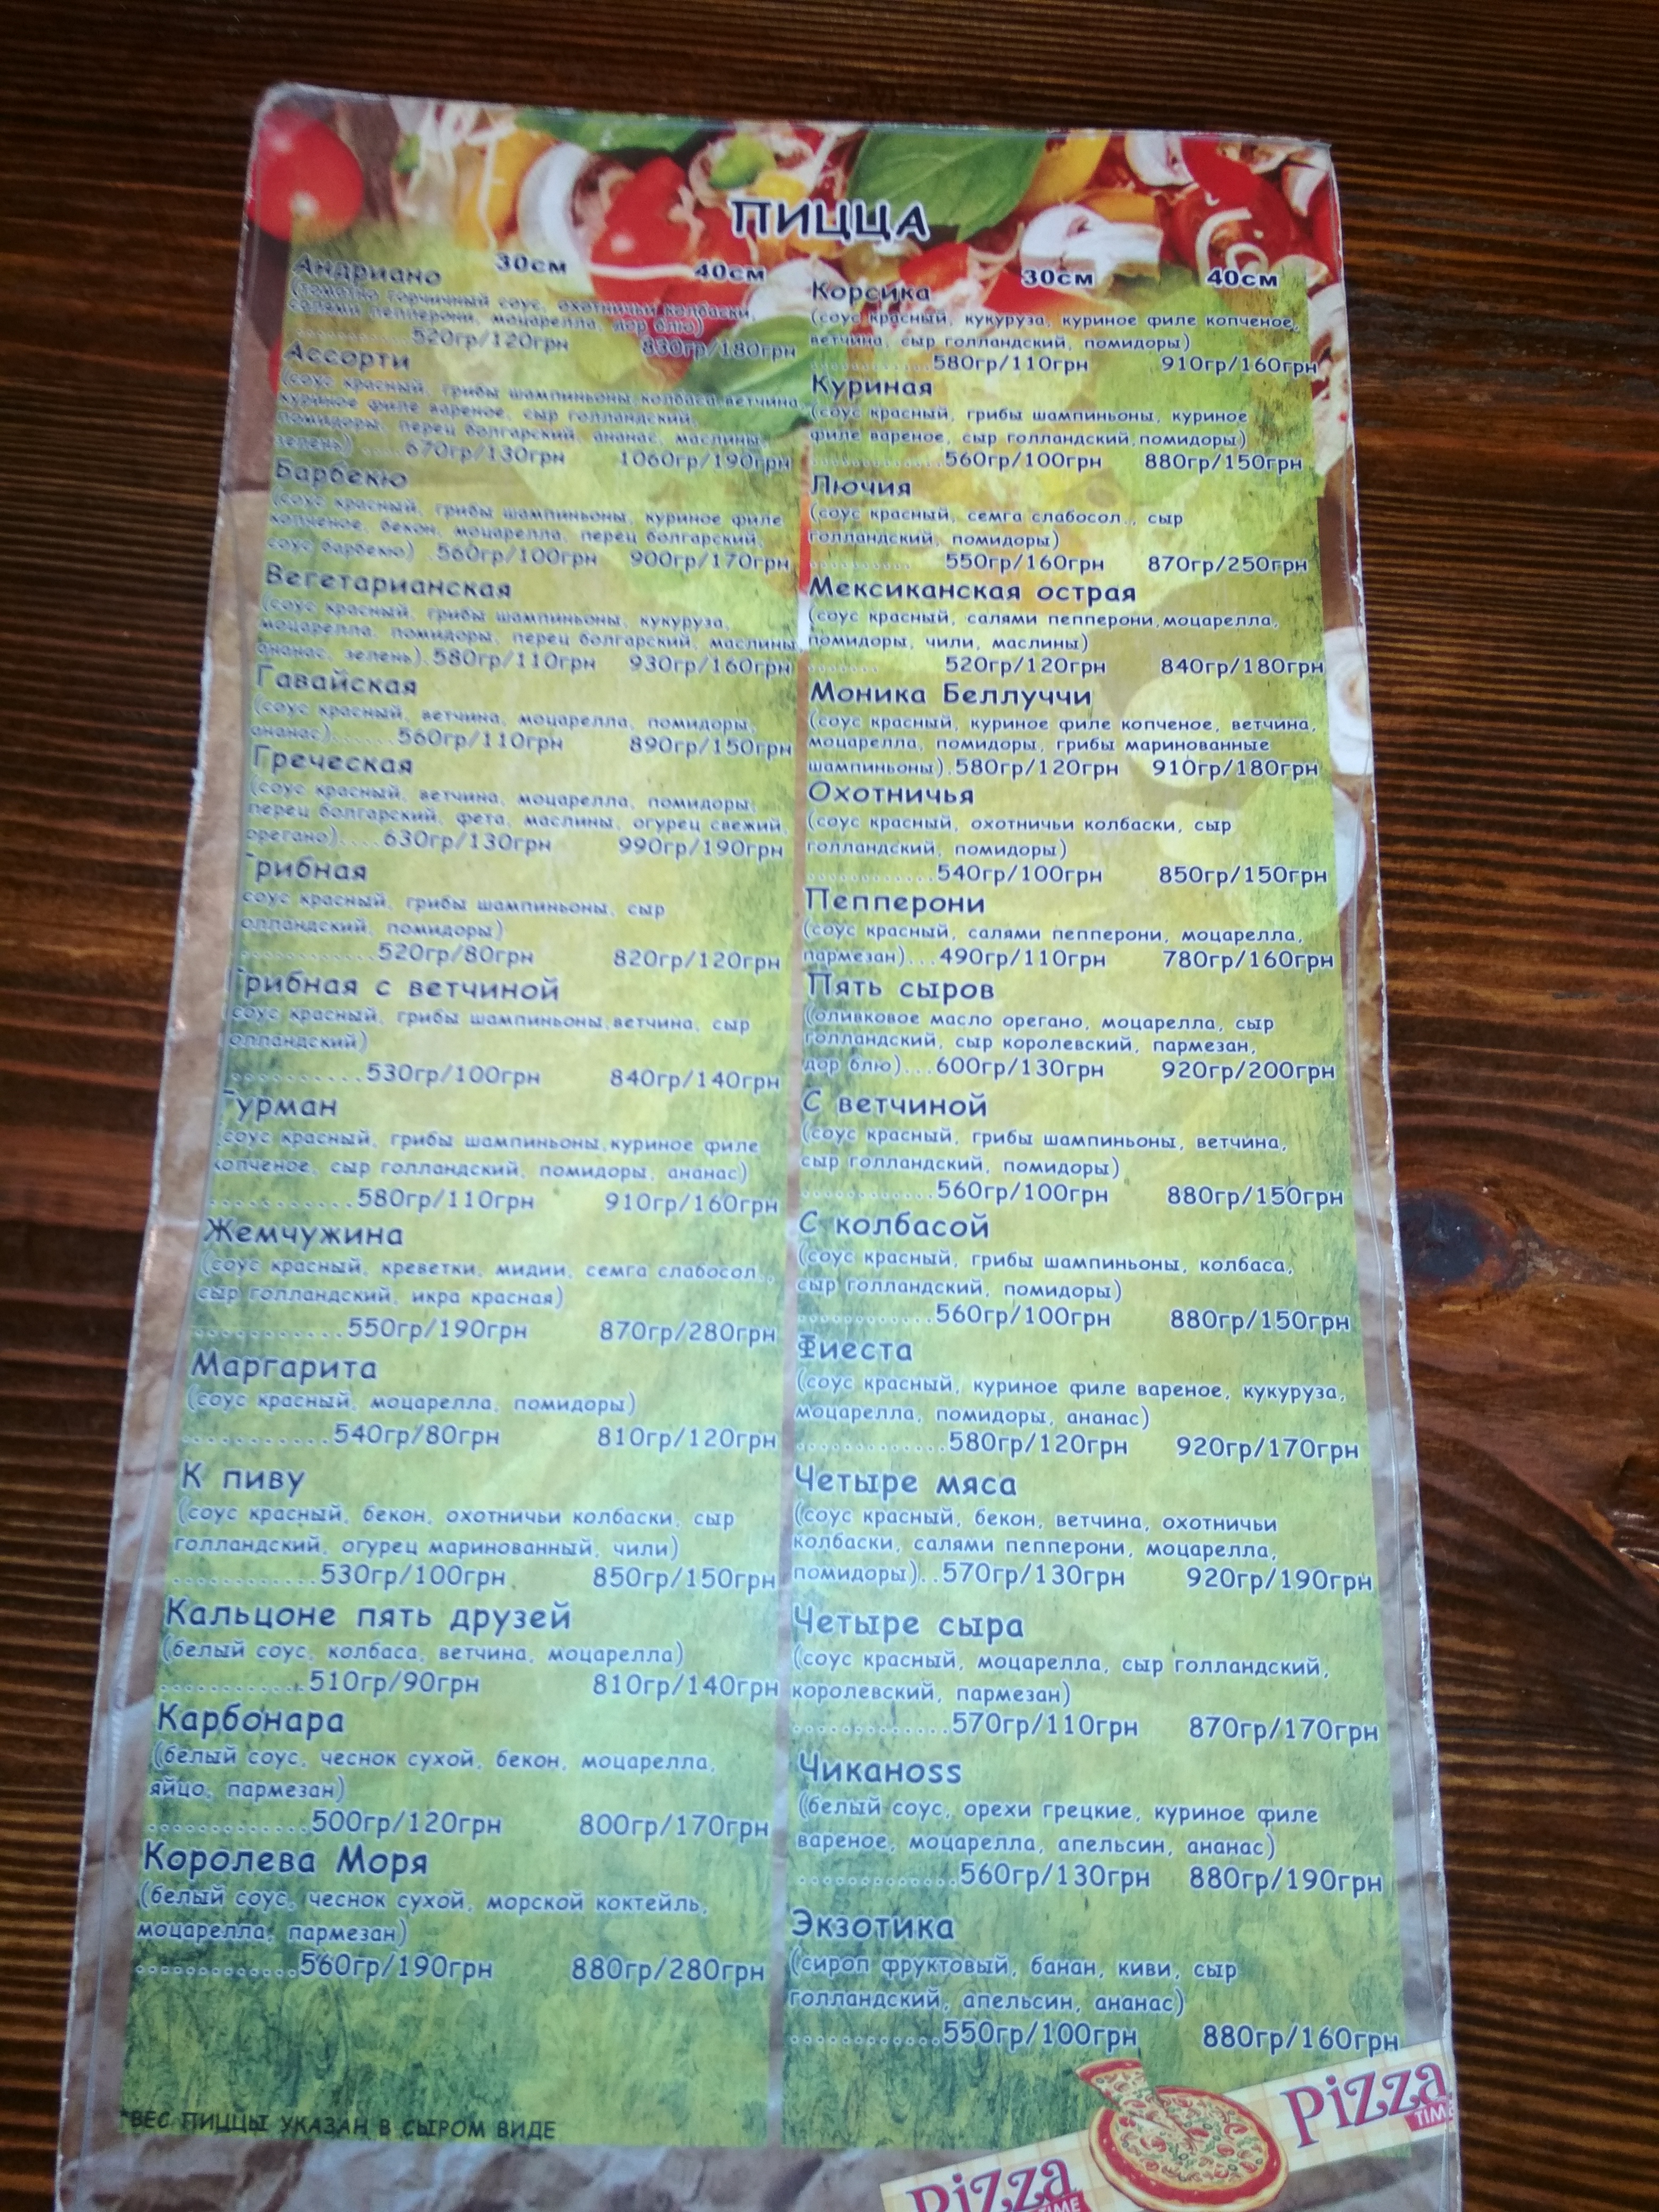 ПИЦЦА
30см 40см
Андриано
(томатно горчичный соус, охотничьи колбаски,
салями пепперони, моцарелла, дор блю)
............520гр/120грн 830гр/180грн
Ассорти
(соус красный, грибы шампиньоны,колбаса,ветчина,
куриное филе вареное, сыр голландский,
помидоры, перец болгарский, ананас, маслины,
зелень) .....670гр/130грн 1060гр/190грн
Барбекю
(соус красный, грибы шампиньоны, куриное филе
копченое, бекон, моцарелла, перец болгарский,
соус барбекю) .560гр/100грн 900гр/170грн
Вегетарианская
(соус красный, грибы шампиньоны, кукуруза,
моцарелла, помидоры, перец болгарский, маслины
ананас, зелень).580гр/110грн 930гр/160грн
Гавайская
(соус красный, ветчина, моцарелла, помидоры,
ананас).......560гр/110грн 890гр/150грн
Греческая
(соус красный, ветчина, моцарелла, помидоры,
перец болгарский, фета, маслины, огурец свежий,
орегано)....630гр/130грн 990гр/190грн
Грибная
соус красный, грибы шампиньоны, сыр
олландский, помидоры)
............520гр/80грн 820гр/120грн
Грибная с ветчиной
соус красный, грибы шампиньоны,ветчина, сыр
олландский)
...........530гр/100грн 840гр/140грн
Гурман
(соус красный, грибы шампиньоны,куриное филе
копченое, сыр голландский, помидоры, ананас)
............580гр/110грн 910гр/160грн
Жемчужина
(соус красный, креветки, мидии, семга слабосол.,
сыр голландский, икра красная)
............550гр/190грн 870гр/280грн
Маргарита
(соус красный, моцарелла, помидоры)
............540гр/80грн 810гр/120грн
К пиву
(соус красный, бекон, охотничьи колбаски, сыр
голландский, огурец маринованный, чили)
............530гр/100грн 850гр/150грн
Кальцоне пять друзей
(белый соус, колбаса, ветчина, моцарелла)
............510гр/90грн 810гр/140грн
Карбонара
(белый соус, чеснок сухой, бекон, моцарелла,
яйцо, пармезан)
.............500гр/120грн 800гр/170грн
Королева Моря
(белый соус, чеснок сухой, морской коктейль,
моцарелла, пармезан)
.............560гр/190грн 880гр/280грн
*ВЕС ПИЦЦЫ УКАЗАН В СЫРОМ ВИДЕ
30см 40см
Корсика
(соус красный, кукуруза, куриное филе копченое,
ветчина, сыр голландский, помидоры)
............580гр/110грн 910гр/160грн
Куриная
(соус красный, грибы шампиньоны, куриное
филе вареное, сыр голландский,помидоры)
.............560гр/100грн 880гр/150грн
Лючия
(соус красный, семга слабосол., сыр
голландский, помидоры)
.......... 550гр/160грн 870гр/250грн
Мексиканская острая
(соус красный, салями пепперони,моцарелла,
помидоры, чили, маслины)
....... 520гр/120грн 840гр/180грн
Моника Беллуччи
(соус красный, куриное филе копченое, ветчина,
моцарелла, помидоры, грибы маринованные
шампиньоны).580гр/120грн 910гр/180грн
Охотничья
(соус красный, охотничьи колбаски, сыр
голландский, помидоры)
............540гр/100грн 850гр/150грн
Пепперони
(соус красный, салями пепперони, моцарелла,
пармезан)...490гр/110грн 780гр/160грн
Пять сыров
(оливковое масло орегано, моцарелла, сыр
голландский, сыр королевский, пармезан,
дор блю)...600гр/130грн 920гр/200грн
С ветчиной
(соус красный, грибы шампиньоны, ветчина,
сыр голландский, помидоры)
............560гр/100грн 880гр/150грн
С колбасой
(соус красный, грибы шампиньоны, колбаса,
сыр голландский, помидоры)
............560гр/100грн 880гр/150грн
Фиеста
(соус красный, куриное филе вареное, кукуруза,
моцарелла, помидоры, ананас)
.............580гр/120грн 920гр/170грн
Четыре мяса
(соус красный, бекон, ветчина, охотничьи
колбаски, салями пепперони, моцарелла,
помидоры)..570гр/130грн 920гр/190грн
Четыре сыра
(соус красный, моцарелла, сыр голландский,
королевский, пармезан)
.............570гр/110грн 870гр/170грн
Чиканоss
(белый соус, орехи грецкие, куриное филе
вареное, моцарелла, апельсин, ананас)
.............560гр/130грн 880гр/190грн
Экзотика
(сироп фруктовый, банан, киви, сыр
голландский, апельсин, ананас)
............550гр/100грн 880гр/160грн
Pizza
TIME
Pizza
TIME